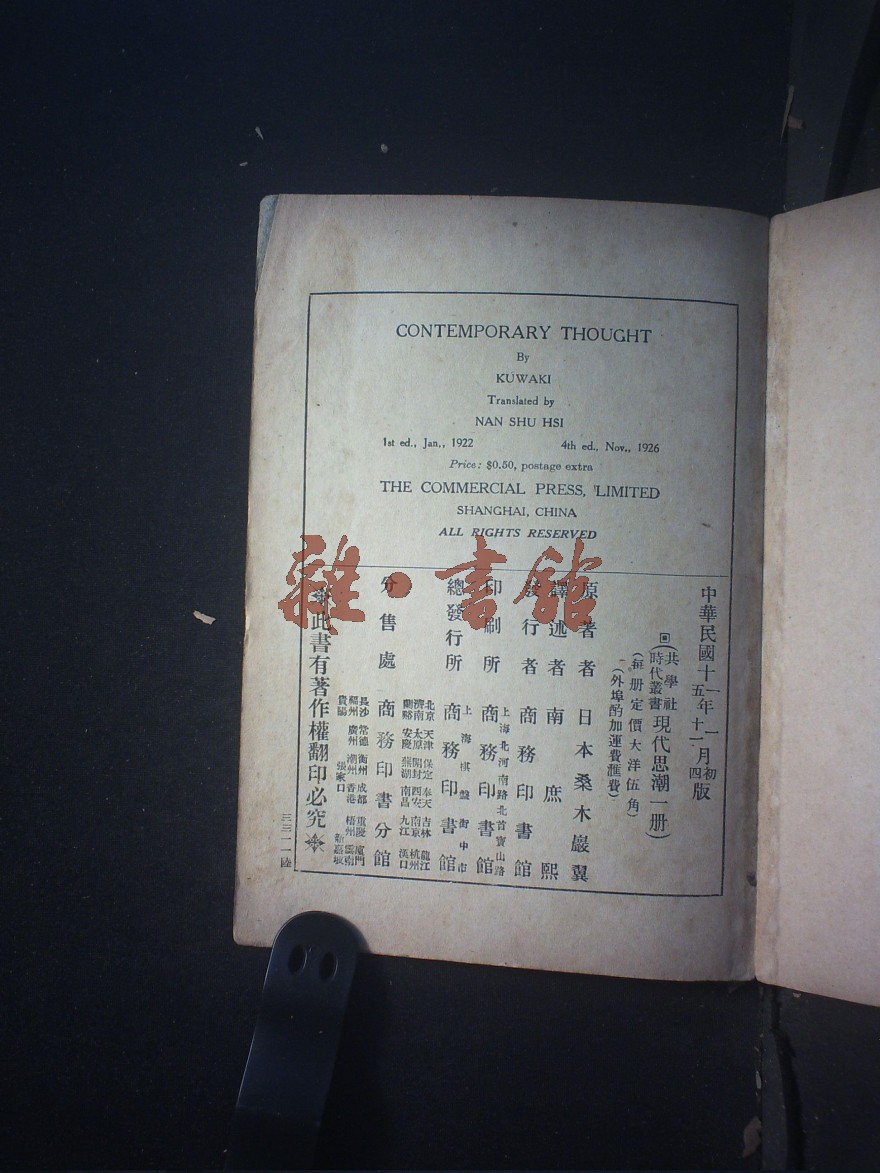 CONTEMPORARY THOUGHT
By
KUWAKI
Translated by
NAN SHU HSI
1st ed., Jan., 1922 4th ed., Nov., 1926
Price: $0.50, postage extra
THE COMMERCIAL PRESS, LIMITED
SHANGHAI, CHINA
ALL RIGHTS RESERVED
雜·書館
中華民國十一年一月初版
五年十一月四版
共學社
時代叢書
現代思潮一册
(每册定價大洋伍角)
(外埠酌加運費匯費)
原著者 日本桑木嚴翼
譯述者 南庶熙
發行者 商務印書館
印刷所 上海北河南路北首寶山路 商務印書館
總發行所 上海棋盤街中市 商務印書館
分售處 商務印書分館
北京 天津 保定 奉天 吉林 龍江
濟南 太原 開封 西安 南京 杭州
蘭谿 安慶 蕪湖 南昌 九江 漢口
長沙 常德 衡州 成都 重慶 廈門
福州 廣州 潮州 香港 梧州 雲南
貴陽 張家口 新嘉坡
此書有著作權翻印必究
三三一一陸